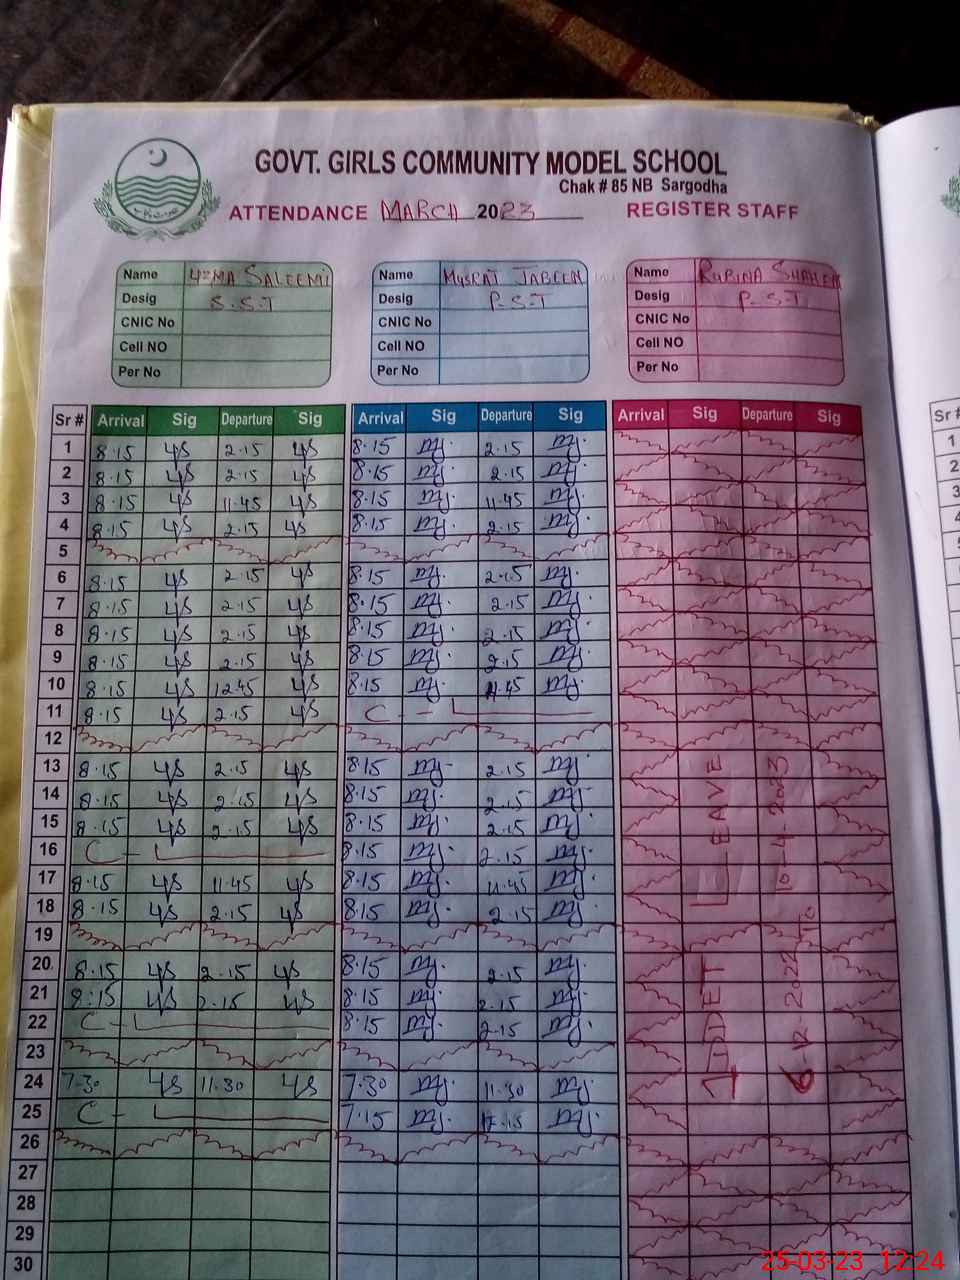 GOVT. GIRLS COMMUNITY MODEL SCHOOL
Chak # 85 NB Sargodha
ATTENDANCE MARCH 2023 REGISTER STAFF
Name UZMA SALEEMI Name MUSRAT JABEEN Name RUBINA SHAHEEN
Desig S.S.T Desig P-S-T Desig P-S-T
CNIC No CNIC No CNIC No
Cell NO Cell NO Cell NO
Per No Per No Per No
Sr # Arrival Sig Departure Sig Arrival Sig Departure Sig Arrival Sig Departure Sig
1 8.15 US 2.15 US 8.15 MJ. 2.15 MJ.
2 8.15 US 2.15 US 8.15 MJ. 2.15 MJ.
3 8.15 US 11.45 US 8.15 MJ. 11.45 MJ.
4 8.15 US 2.15 US 8.15 MJ. 2.15 MJ.
5
6 8.15 US 2.15 US 8.15 MJ. 2.15 MJ.
7 8.15 US 2.15 US 8.15 MJ. 2.15 MJ.
8 8.15 US 2.15 US 8.15 MJ. 2.15 MJ.
9 8.15 US 2.15 US 8.15 MJ. 2.15 MJ.
10 8.15 US 12.45 US 8.15 MJ. 11.45 MJ.
11 8.15 US 2.15 US C - L
12
13 8.15 US 2.15 US 8.15 MJ. 2.15 MJ.
14 8.15 US 2.15 US 8.15 MJ. 2.15 MJ.
15 8.15 US 2.15 US 8.15 MJ. 2.15 MJ.
16 C - L 8.15 MJ. 2.15 MJ.
17 8.15 US 11.45 US 8.15 MJ. 11.45 MJ.
18 8.15 US 2.15 US 8.15 MJ. 2.15 MJ.
19
20 8.15 US 2.15 US 8.15 MJ. 2.15 MJ.
21 8:15 US 2.15 US 8.15 MJ. 2.15 MJ.
22 C - L 8.15 MJ. 2.15 MJ.
23
24 7.30 US 11.30 US 7.30 MJ. 11.30 MJ.
25 C - L 7.15 MJ. MJ.
26
27
28
29
30
IDDET LEAVE
6-12-2022 To 10-4-2023
Sr #
1
2
3
4
25-03-23 12:24